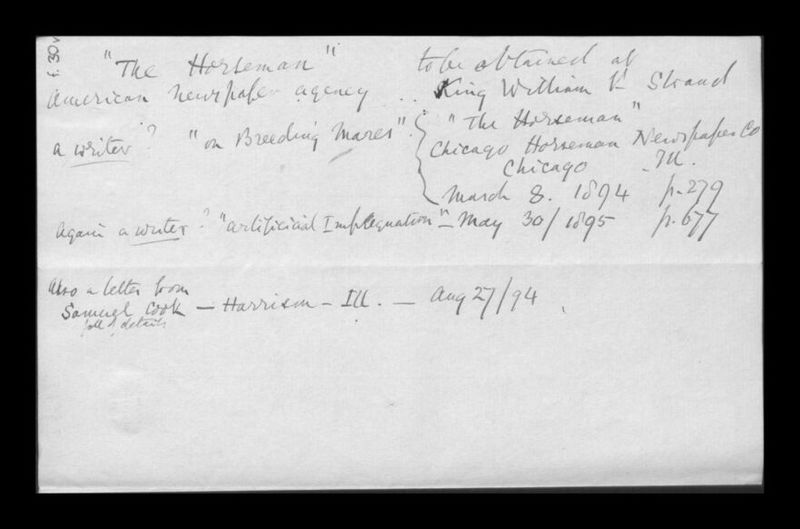 f. 30v
"The Horseman" to be obtained at
American newspaper agency .. King William St Strand
a writer? "on Breeding Mares". { "The Horseman"
Chicago Horseman Newspaper Co
Chicago Ill.
March 8. 1894 p. 279
Again a writer? "artificial Impregnation" – May 30/1895 p. 677
Also a letter from
Samuel Cook – Harrison – Ill. – Aug 27/94
full of details